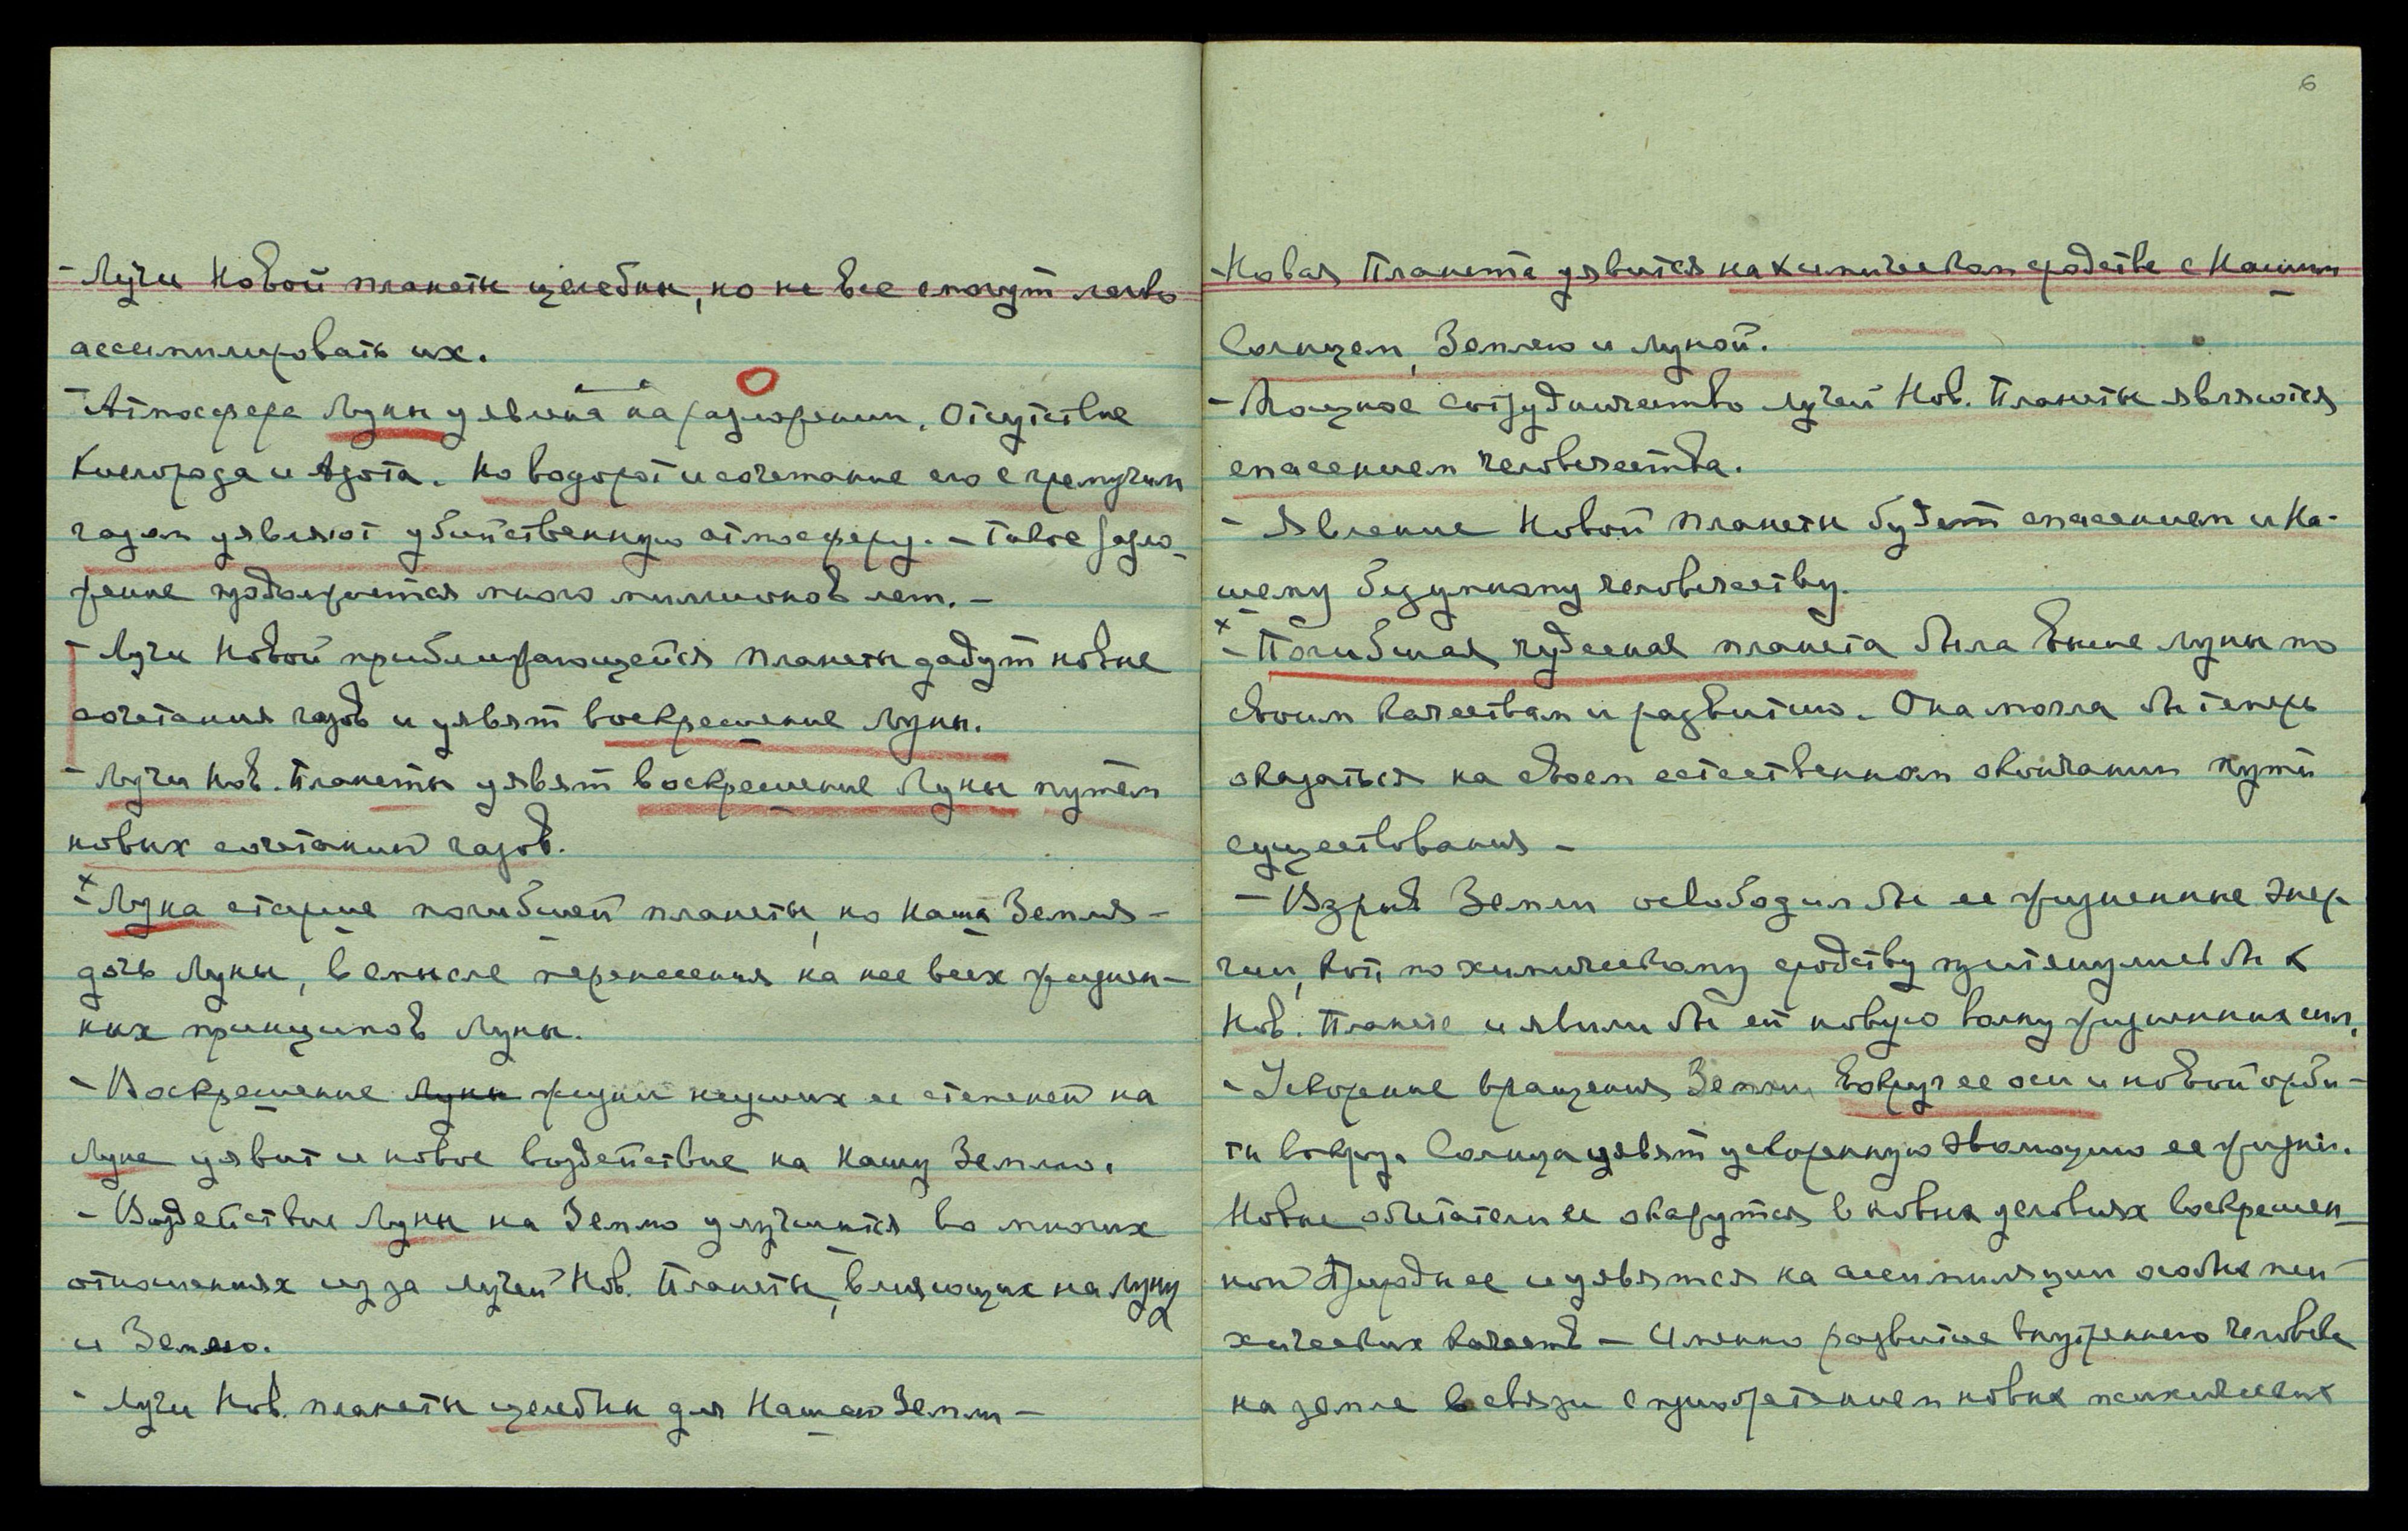 - Лучи Новой планеты целебны, но не все смогут легко
ассимилировать их.
- Атмосфера Луны уявлена на разложении. Отсутствие
Кислорода и Азота. Но водород и сочетание его с гремучим
газом уявляют убийственную атмосферу. - Такое разло-
жение продолжается много миллионов лет. -
- Лучи Новой приближающейся планеты дадут новые
сочетания газов и уявят воскрешение Луны.
- Лучи Нов. Планеты уявят воскрешение Луны путем
новых сочетаний газов.
х - Луна старше погибшей планеты, но Наша Земля -
дочь Луны, в смысле перенесения на нее всех жизнен-
ных принципов Луны.
- Воскрешение Луны жизни низших ее степеней на
Луне уявит и новое воздействие на Нашу Землю.
- Воздействие Луны на Землю улучшится во многих
отношениях из за лучей Нов. Планеты, влияющих на Луну
и Землю.
- Лучи Нов. планеты целебны для Нашей Земли -
6
- Новая Планета уявится на химическом сродстве с Нашим
Солнцем, Землею и Луной.
- Мощное сотрудничество лучей Нов. Планеты являются
спасением человечества.
- Явление Новой планеты будет спасением и На-
шему безумному человечеству.
х - Погибшая чудесная планета была выше Луны по
своим качествам и развитию. Она могла бы теперь
оказаться на своем естественном окончании пути
существования -
- Взрыв Земли освободил бы ее жизненные энер-
гии, кот по химическому сродству притянулись бы к
Нов. Планете и явили бы ей новую волну жизненных сил.
- Ускорение вращения Земли вокруг ее оси и новой орби-
ты вокруг Солнца уявят ускоренную эволюцию ее жизни.
Новые обитатели ее окажутся в новых условиях воскрешен-
ной Природы ее и уявятся на ассимиляции особых пси-
хических качеств - Именно развитие внутреннего человека
на земле в связи с приобретением новых психических